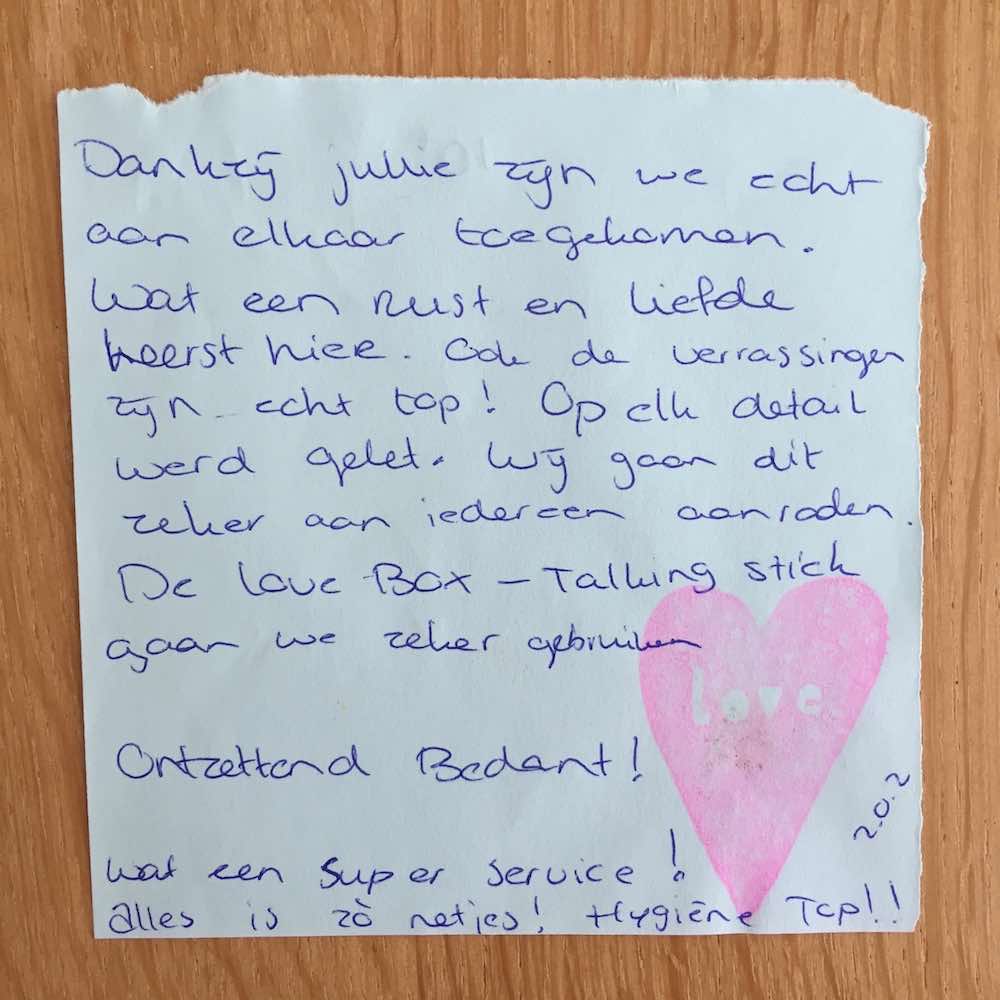 Dankzij jullie zijn we echt
aan elkaar toegekomen.
Wat een rust en liefde
heerst hier. Ook de verrassingen
zijn echt top! Op elk detail
werd gelet. Wij gaan dit
zeker aan iedereen aanraden.
De Love Box – Talking stick
gaan we zeker gebruiken
love
Ontzettend Bedant!
2.0.2
Wat een super service!
alles is zò netjes! Hygiëne Top!!